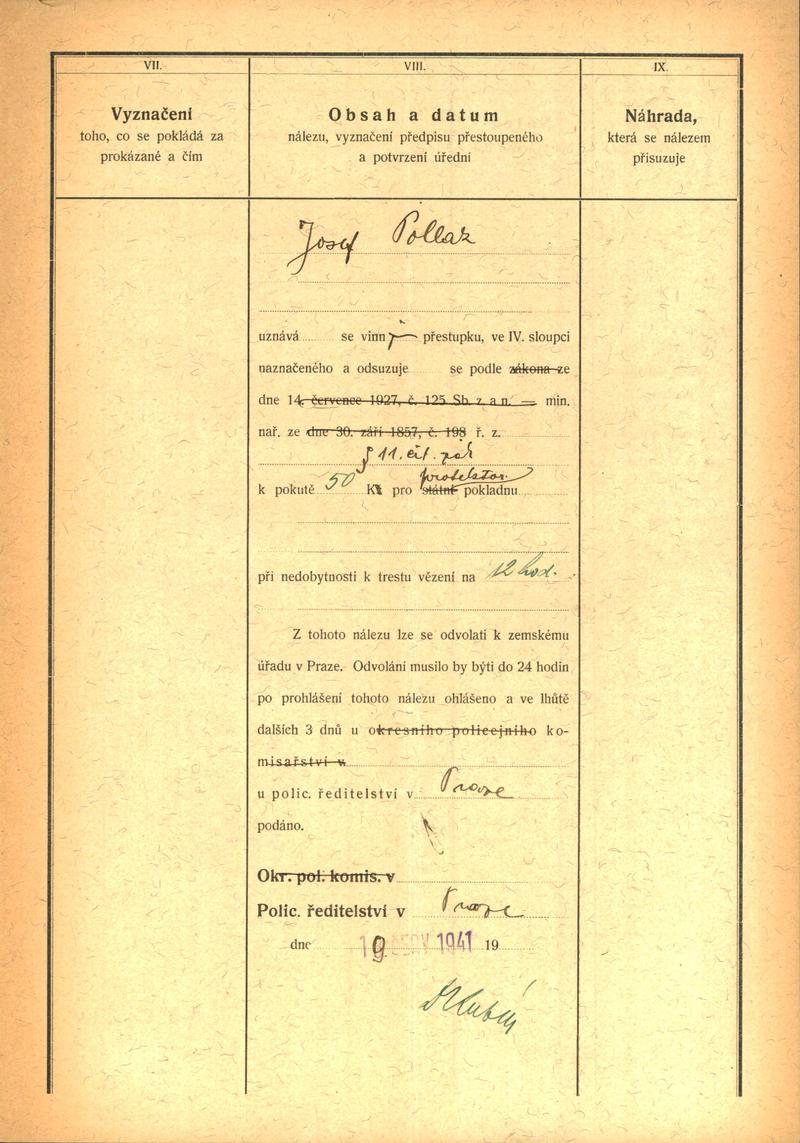 VII.
Vyznačení
toho, co se pokládá za
prokázané a čím
VIII.
Obsah a datum
nálezu, vyznačení předpisu přestoupeného
a potvrzení úřední
IX.
Náhrada,
která se nálezem
přisuzuje
Josef Pollak
uznává se vinným přestupku, ve IV. sloupci
naznačeného a odsuzuje se podle zákona ze
dne 14. července 1927, č. 125 Sb. z. a n. — min.
nař. ze dne 30. září 1857, č. 198 ř. z.
§ 11. cit. zák
protektor.
k pokutě 50 K pro státní pokladnu
při nedobytnosti k trestu vězení na 12 hod.
Z tohoto nálezu lze se odvolati k zemskému
úřadu v Praze. Odvolání musilo by býti do 24 hodin
po prohlášení tohoto nálezu ohlášeno a ve lhůtě
dalších 3 dnů u okresního policejního ko-
misařství v
u polic. ředitelství v Praze
podáno.
Okr. pol. komis. v
Polic. ředitelství v Praze
dne 1941 19